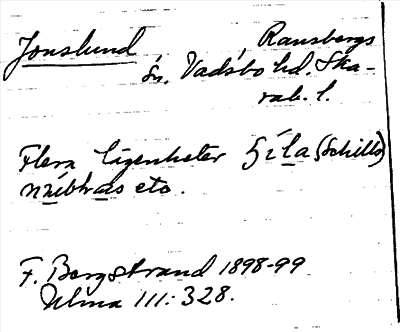 Jonslund, Ransbergs
sn. Vadsbo hd. Ska-
rab. l.
Flera lägenheter (Schills)
etc.
F. Bergstrand 1898-99
Ulma 111: 328.